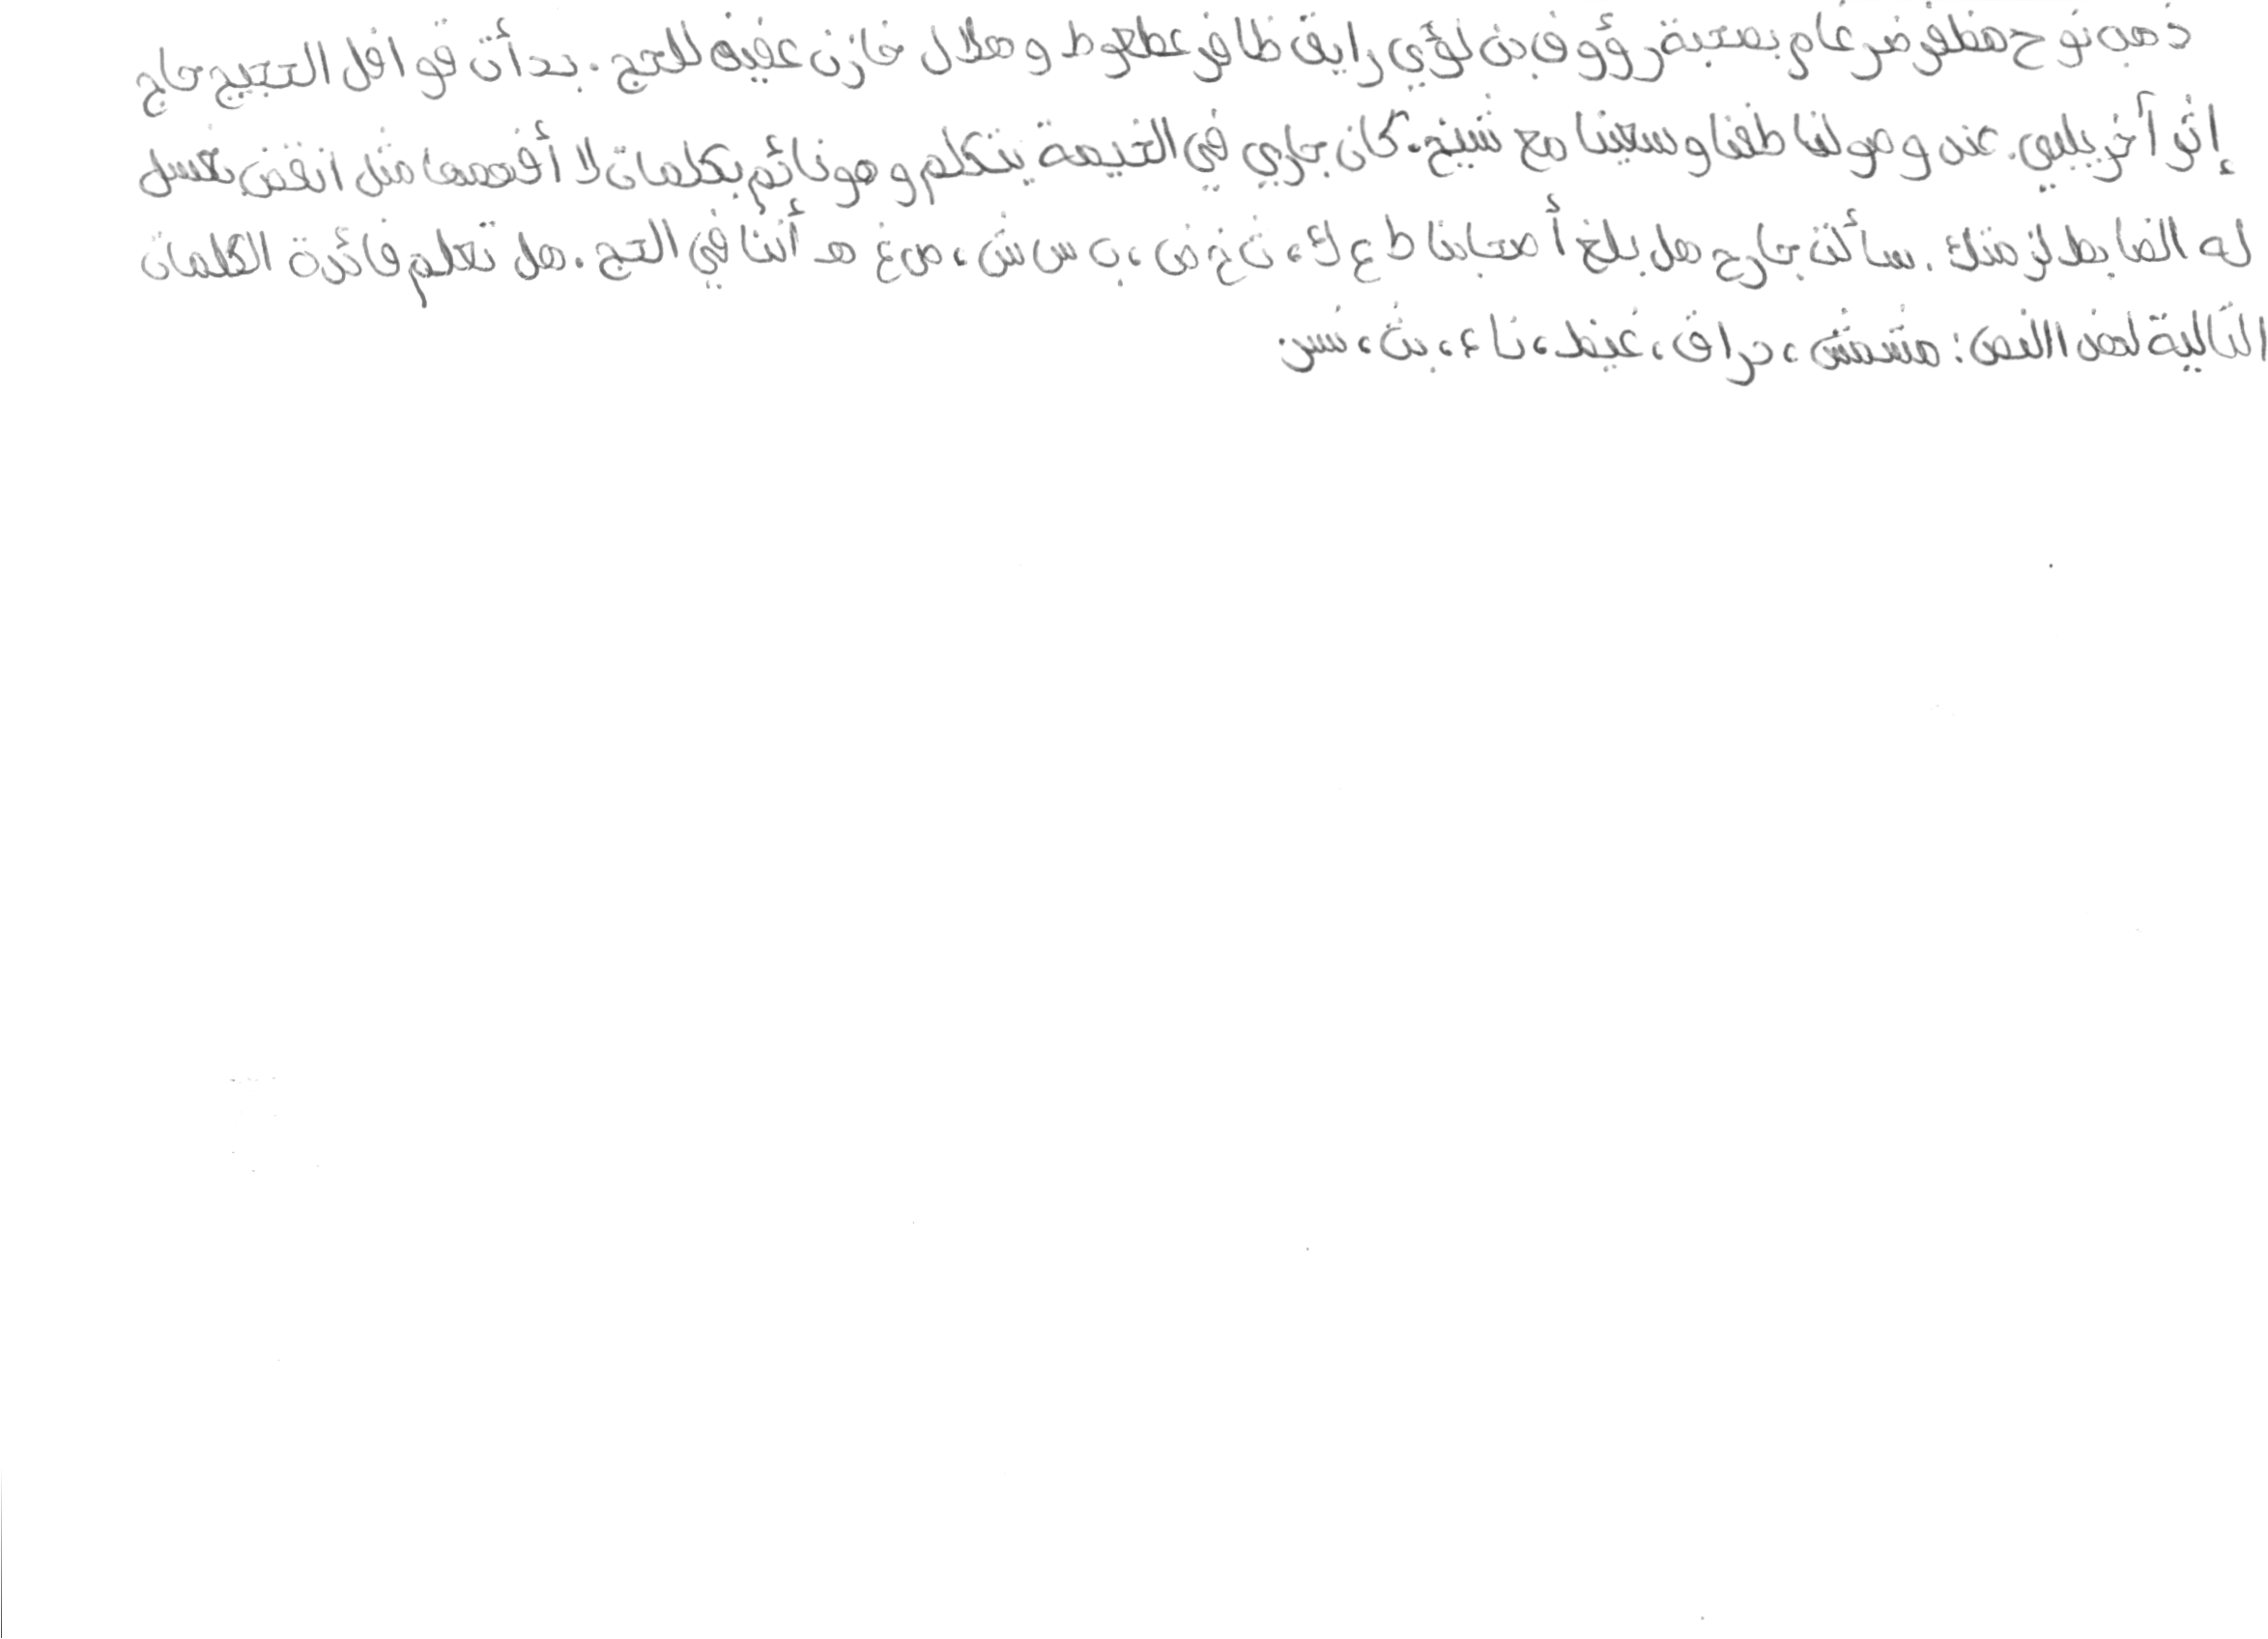 ذهب نوح مظفر ضرغام بصحبة رؤوف بن لؤي رايق ظافر عطعوط و هلال خازن عفيف للحج . بدأت قوافل الحجيج حاج
إثر آخر يلبي . عند وصولنا طفنا وسعينا مع شيخ . كان جاري في الخيمة يتكلم وهو نائم بكلمات لا أفهمها مثل انقض بغسل
له الضابط لز منك . سألت جارج هل بلغ أصحابنا ط ع ك ، ث خ ض ، ب س ش ، ص غ هـ أننا في الحج . هل تعلم فائدة الكلمات
التالية لهذا النص : مشمش ، دراق ، غيظ ، ناء ، بث ، نسر